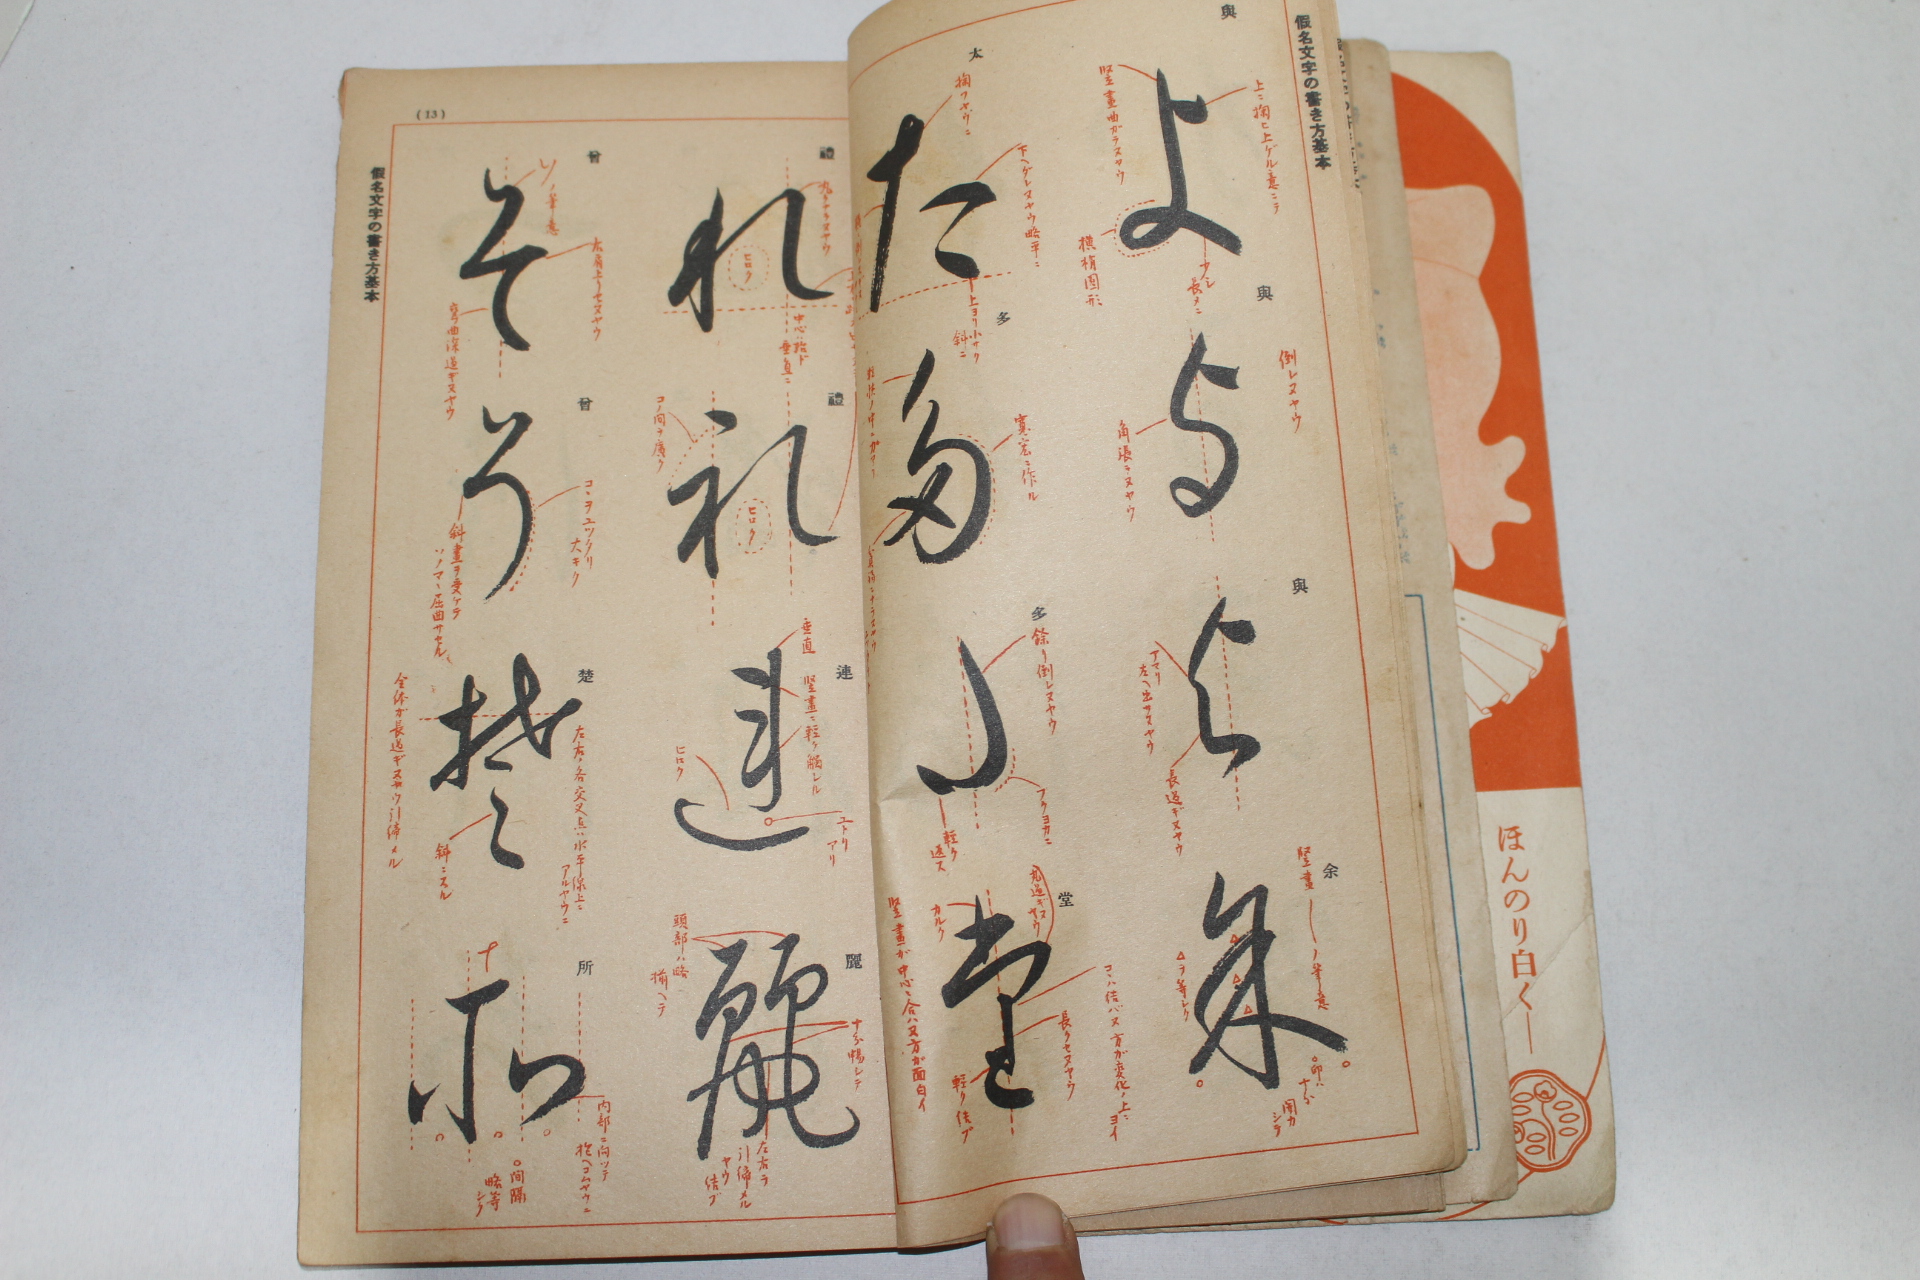 假名文字の書き方基本
與
よ
上ニ掬ヒ上ゲル意ニテ
竪畫曲ガラヌヤウ
横楕円形
少シ
長メニ
與
与
倒レヌヤウ
角張ラヌヤウ
與
与
アマリ
左ヘ出サヌヤウ
長過ギヌヤウ
余
余
竪畫
ノ筆意
△ヲ等シク
○印ハ
十分
開カ
シテ
太
た
掬フヤウニ
下ヘゲレヌヤウ略平ニ
上ヨリ小サク
斜ニ
多
多
寛宏ニ作ル
多
餘リ倒レヌヤウ
フクヨカニ
軽ク
返ス
堂
堂
丸過ギヌ
ヤウ
カルク
竪畫が中心ニ合ハヌ方が面白イ
コヽハ結バヌ方が変化ノ上ニ
ヨイ
長クセヌヤウ
軽ク結ブ
(13)
假名文字の書き方基本
禮
れ
ヒロク
中心ハ殆ド
垂直ニ
禮
礼
コノ間ヲ廣ク
ヒロク
連
連
垂直
竪畫ニ軽ク觸レル
ヒロク
ユトリ
アリ
麗
麗
頭部ハ略
揃ヘテ
十分暢シテ
左右ヲ
引締メル
ヤウ
結ブ
曾
そ
ソノ筆意
右肩上リセヌヤウ
弯曲深過ギヌヤウ
曾
そ
コヽヲユックリ
大キク
斜畫ヲ受ケテ
ソノマヽ屈曲サセル
楚
楚
左、右、各交叉点ハ水平線上ニ
アルヤウニ
斜ニスル
全体が長過ギヌヤウ引締メル
所
所
内部ニ向ッテ
抱ヘコムヤウニ
○間隔
略等
シク
ほんのり白く―